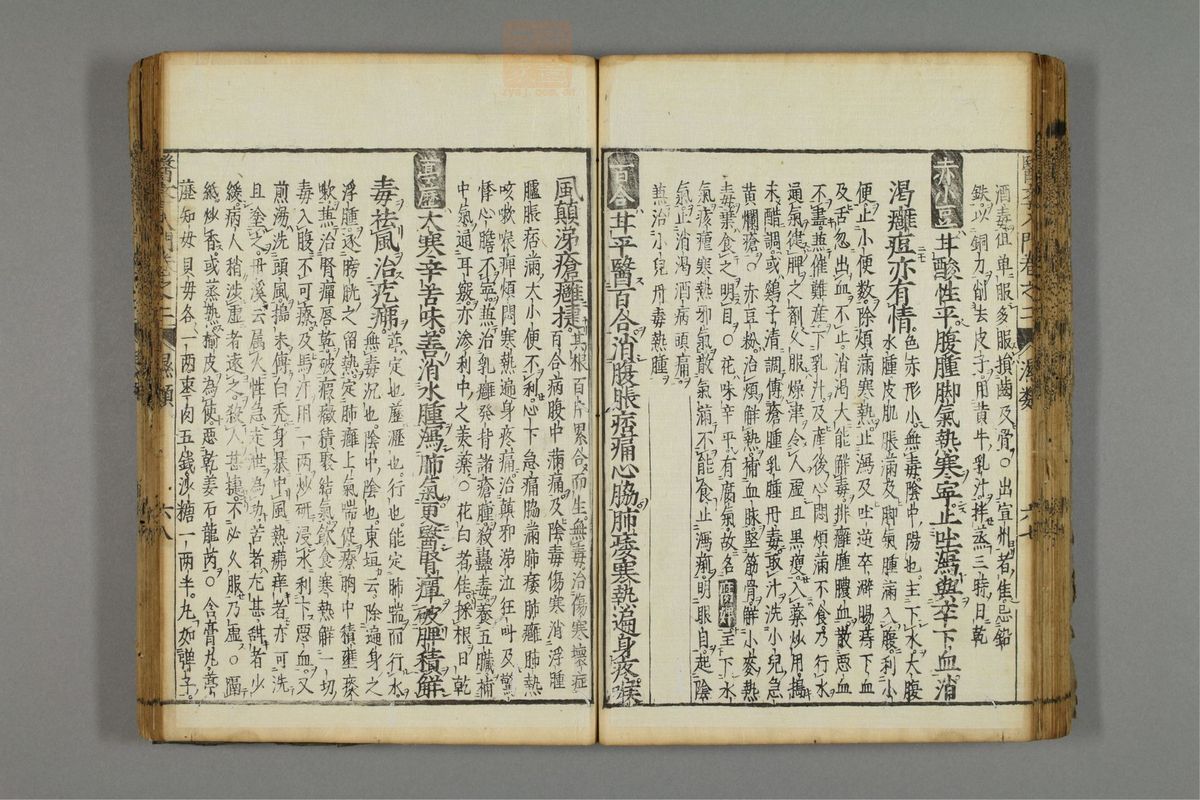 酒毒但單服多服損齒及骨○出宣州者佳忌鉛
鉄以銅刀削去皮子用黄牛乳汁拌蒸三時日乾
赤小豆甘酸性平腹腫脚氣熱寒寧止吐瀉與卒下血消
渴癰痘亦有情色赤形小無毒陰中陽也主下水大腹
水腫皮肌脹滿及脚氣腫滿入腹利小
便止小便數除煩滿寒熱止瀉及吐逆卒澼腸痔下血
及舌忽出血不止消渴大能解毒排癰腫膿血散惡血
不盡兼催難産下乳汁及産後心悶煩滿不食乃行水
通氣健脾之劑久服燥津令人虛且黒瘦入薬炒用搗
末醋調或鷄子清調傅瘡腫乳腫丹毒取汁洗小兒急
黄爛瘡○赤豆粉治煩解熱補血脉堅筋骨解小麥熱
毒葉食之明目○花味辛平有腐氣故名腐婢主下水
氣痎瘧寒熱邪氣散氣滿不能食止瀉痢明眼目起陰
氣止消渴酒病頭痛
兼治小兒丹毒熱腫
百合甘平醫百合消腹脹痞痛心脇肺痿寒熱遍身疼喉
風顛涕瘡癰捷其根百片累合而生無毒治傷寒壞症
百合病腹中滿痛及陰毒傷寒消浮腫
臚脹痞滿大小便不利心下急痛脇滿肺痿肺癰肺熱
咳嗽喉痺煩悶寒熱遍身疼痛治顛邪涕泣狂叫及驚
悸心膽不寧兼治乳癰發背諸瘡腫殺蠱毒養五臟補
中氣通耳竅亦滲利中之羙薬○花白者佳採根日乾
葶藶大寒辛苦味善消水腫瀉肺氣更醫腎癉破肥積解
毒祛風治疙痛葶定也藶瀝也行也能定肺喘而行水
無毒沉也陰中陰也東垣云除遍身之
浮腫逐膀胱之留熱定肺癰上氣喘促療胸中積壅痰
嗽兼治腎癉唇乾破瘕癥積聚結氣飲食寒熱解一切
毒入腹不可療及馬汗用一両炒研浸水利下惡血又
煎湯洗頭風搗末傅白禿身暴中風熱痱痒者亦可洗
且塗之丹溪云属火性急走泄為功苦者尤甚甜者少
緩病人稍渉虛者逺之殺人甚㨗不必久服乃虛○隔
紙炒香或蒸熟榆皮為使惡乾姜石龍芮○含膏丸葶
藶知母貝母各一両棗肉五錢沙糖一両半丸如弾子